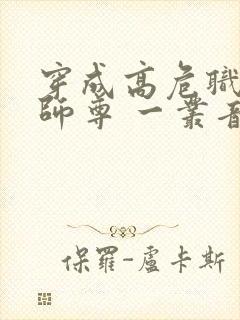 穿成高危職
師尊 一叢音
保羅-盧卡斯